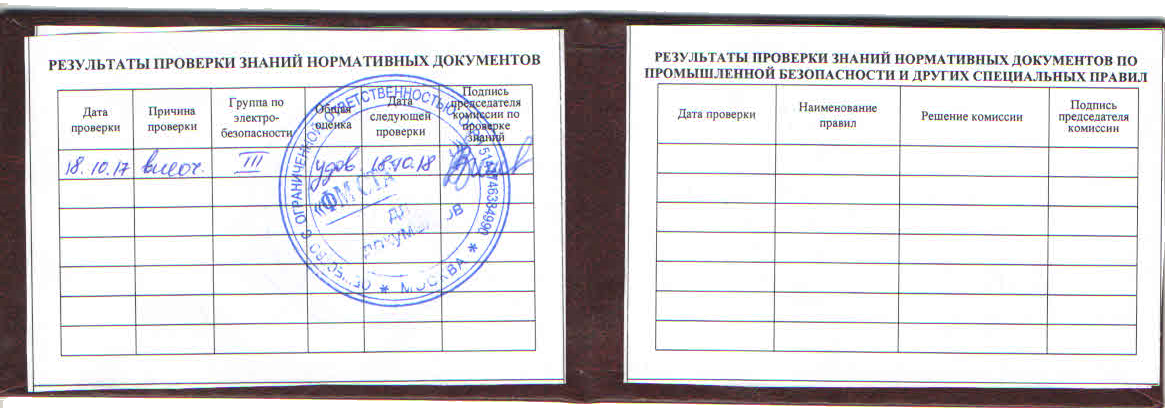 РЕЗУЛЬТАТЫ ПРОВЕРКИ ЗНАНИЙ НОРМАТИВНЫХ ДОКУМЕНТОВ
Дата проверки
Причина проверки
Группа по электро-безопасности
Общая оценка
Дата следующей проверки
Подпись председателя комиссии по проверке знаний
18.10.17 внеоч. III удов. 18.10.18
ОГРАНИЧЕННОЙ ОТВЕТСТВЕННОСТЬЮ
МОСКВА
РЕЗУЛЬТАТЫ ПРОВЕРКИ ЗНАНИЙ НОРМАТИВНЫХ ДОКУМЕНТОВ ПО
ПРОМЫШЛЕННОЙ БЕЗОПАСНОСТИ И ДРУГИХ СПЕЦИАЛЬНЫХ ПРАВИЛ
Дата проверки
Наименование правил
Решение комиссии
Подпись председателя комиссии